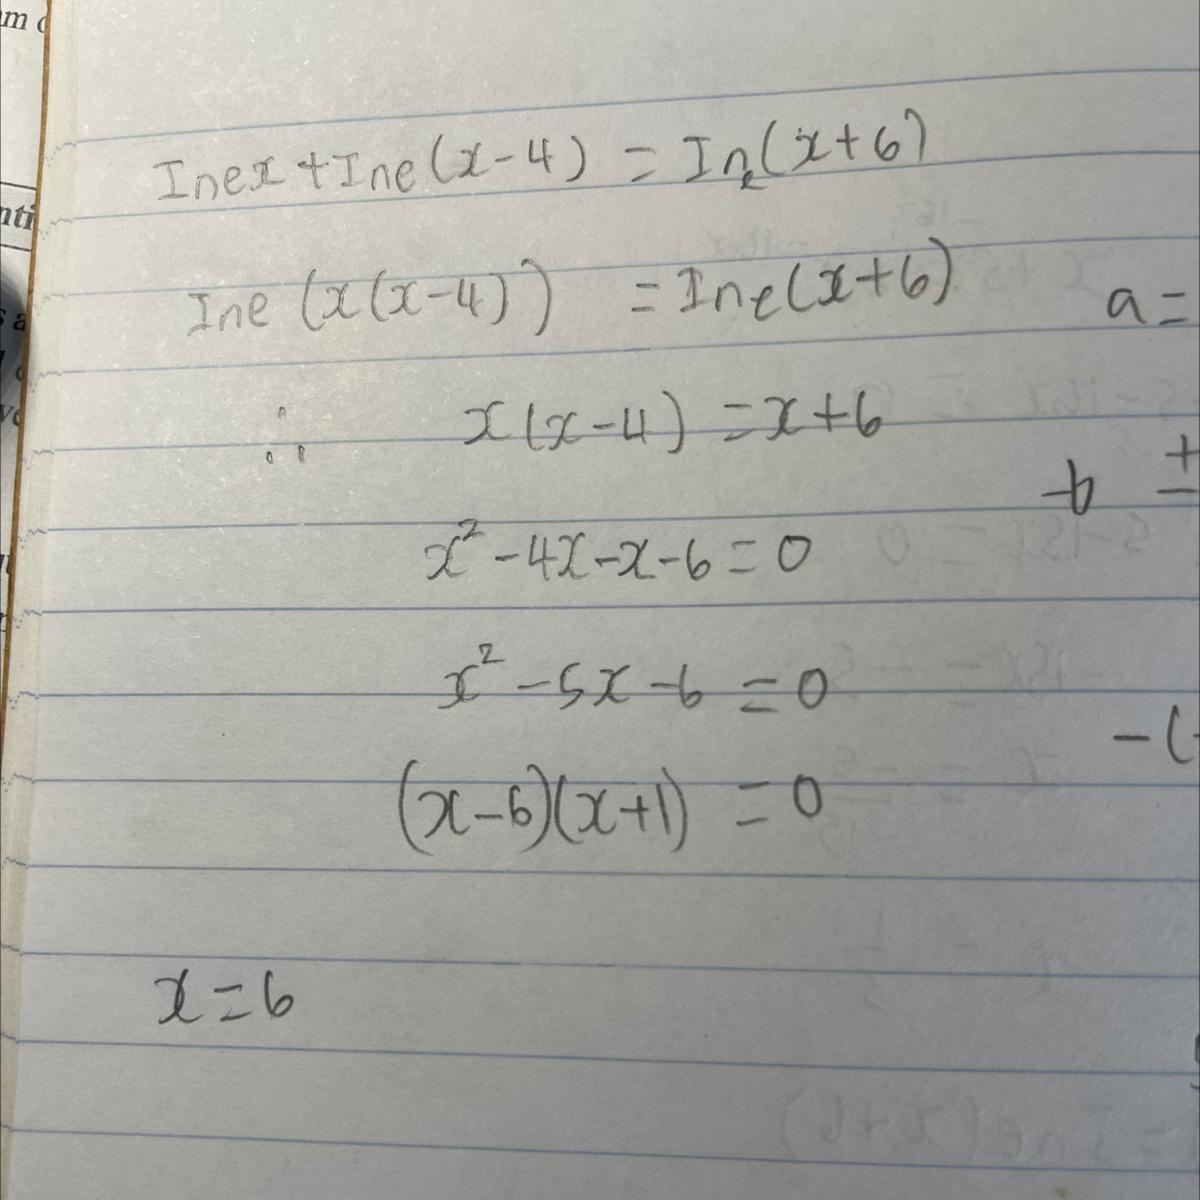 Inex + Ine(x-4) = Ine(x+6)
Ine (x(x-4)) = Ine(x+6)
a =
∴ x(x-4) = x+6
-b ±
x² - 4x - x - 6 = 0
x² - 5x - 6 = 0
-(
(x-6)(x+1) = 0
x = 6